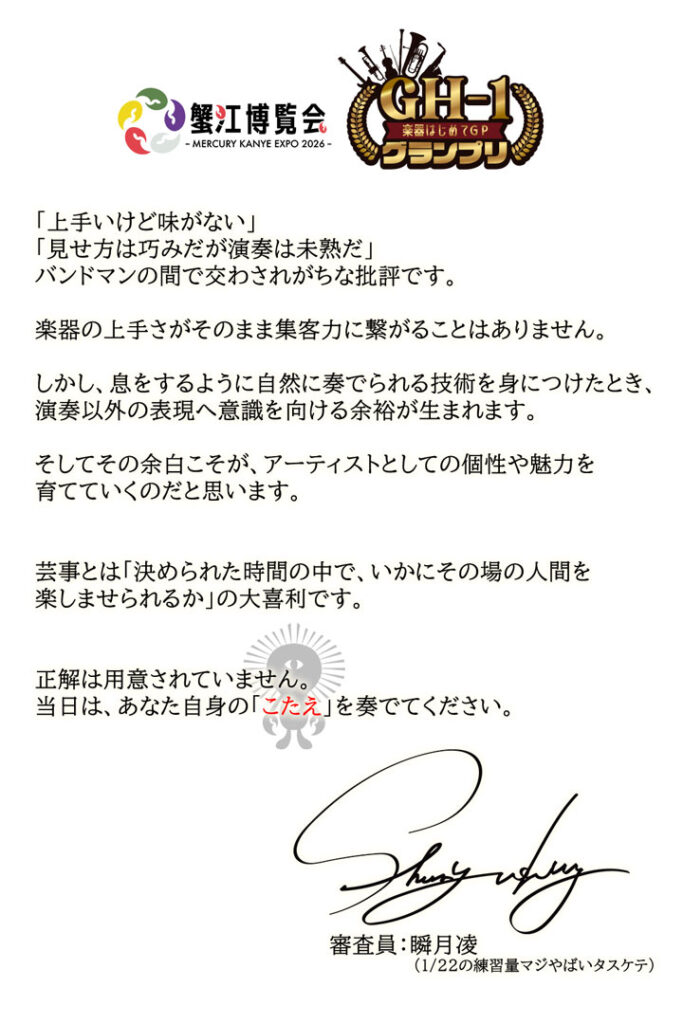 蟹江博覧会
- MERCURY KANYE EXPO 2026 -
GH-1
楽器はじめてGP
グランプリ
「上手いけど味がない」
「見せ方は巧みだが演奏は未熟だ」
バンドマンの間で交わされがちな批評です。
楽器の上手さがそのまま集客力に繋がることはありません。
しかし、息をするように自然に奏でられる技術を身につけたとき、
演奏以外の表現へ意識を向ける余裕が生まれます。
そしてその余白こそが、アーティストとしての個性や魅力を
育てていくのだと思います。
芸事とは「決められた時間の中で、いかにその場の人間を
楽しませられるか」の大喜利です。
正解は用意されていません。
当日は、あなた自身の「こたえ」を奏でてください。
審査員：瞬月凌
（1/22の練習量マジやばいタスケテ）